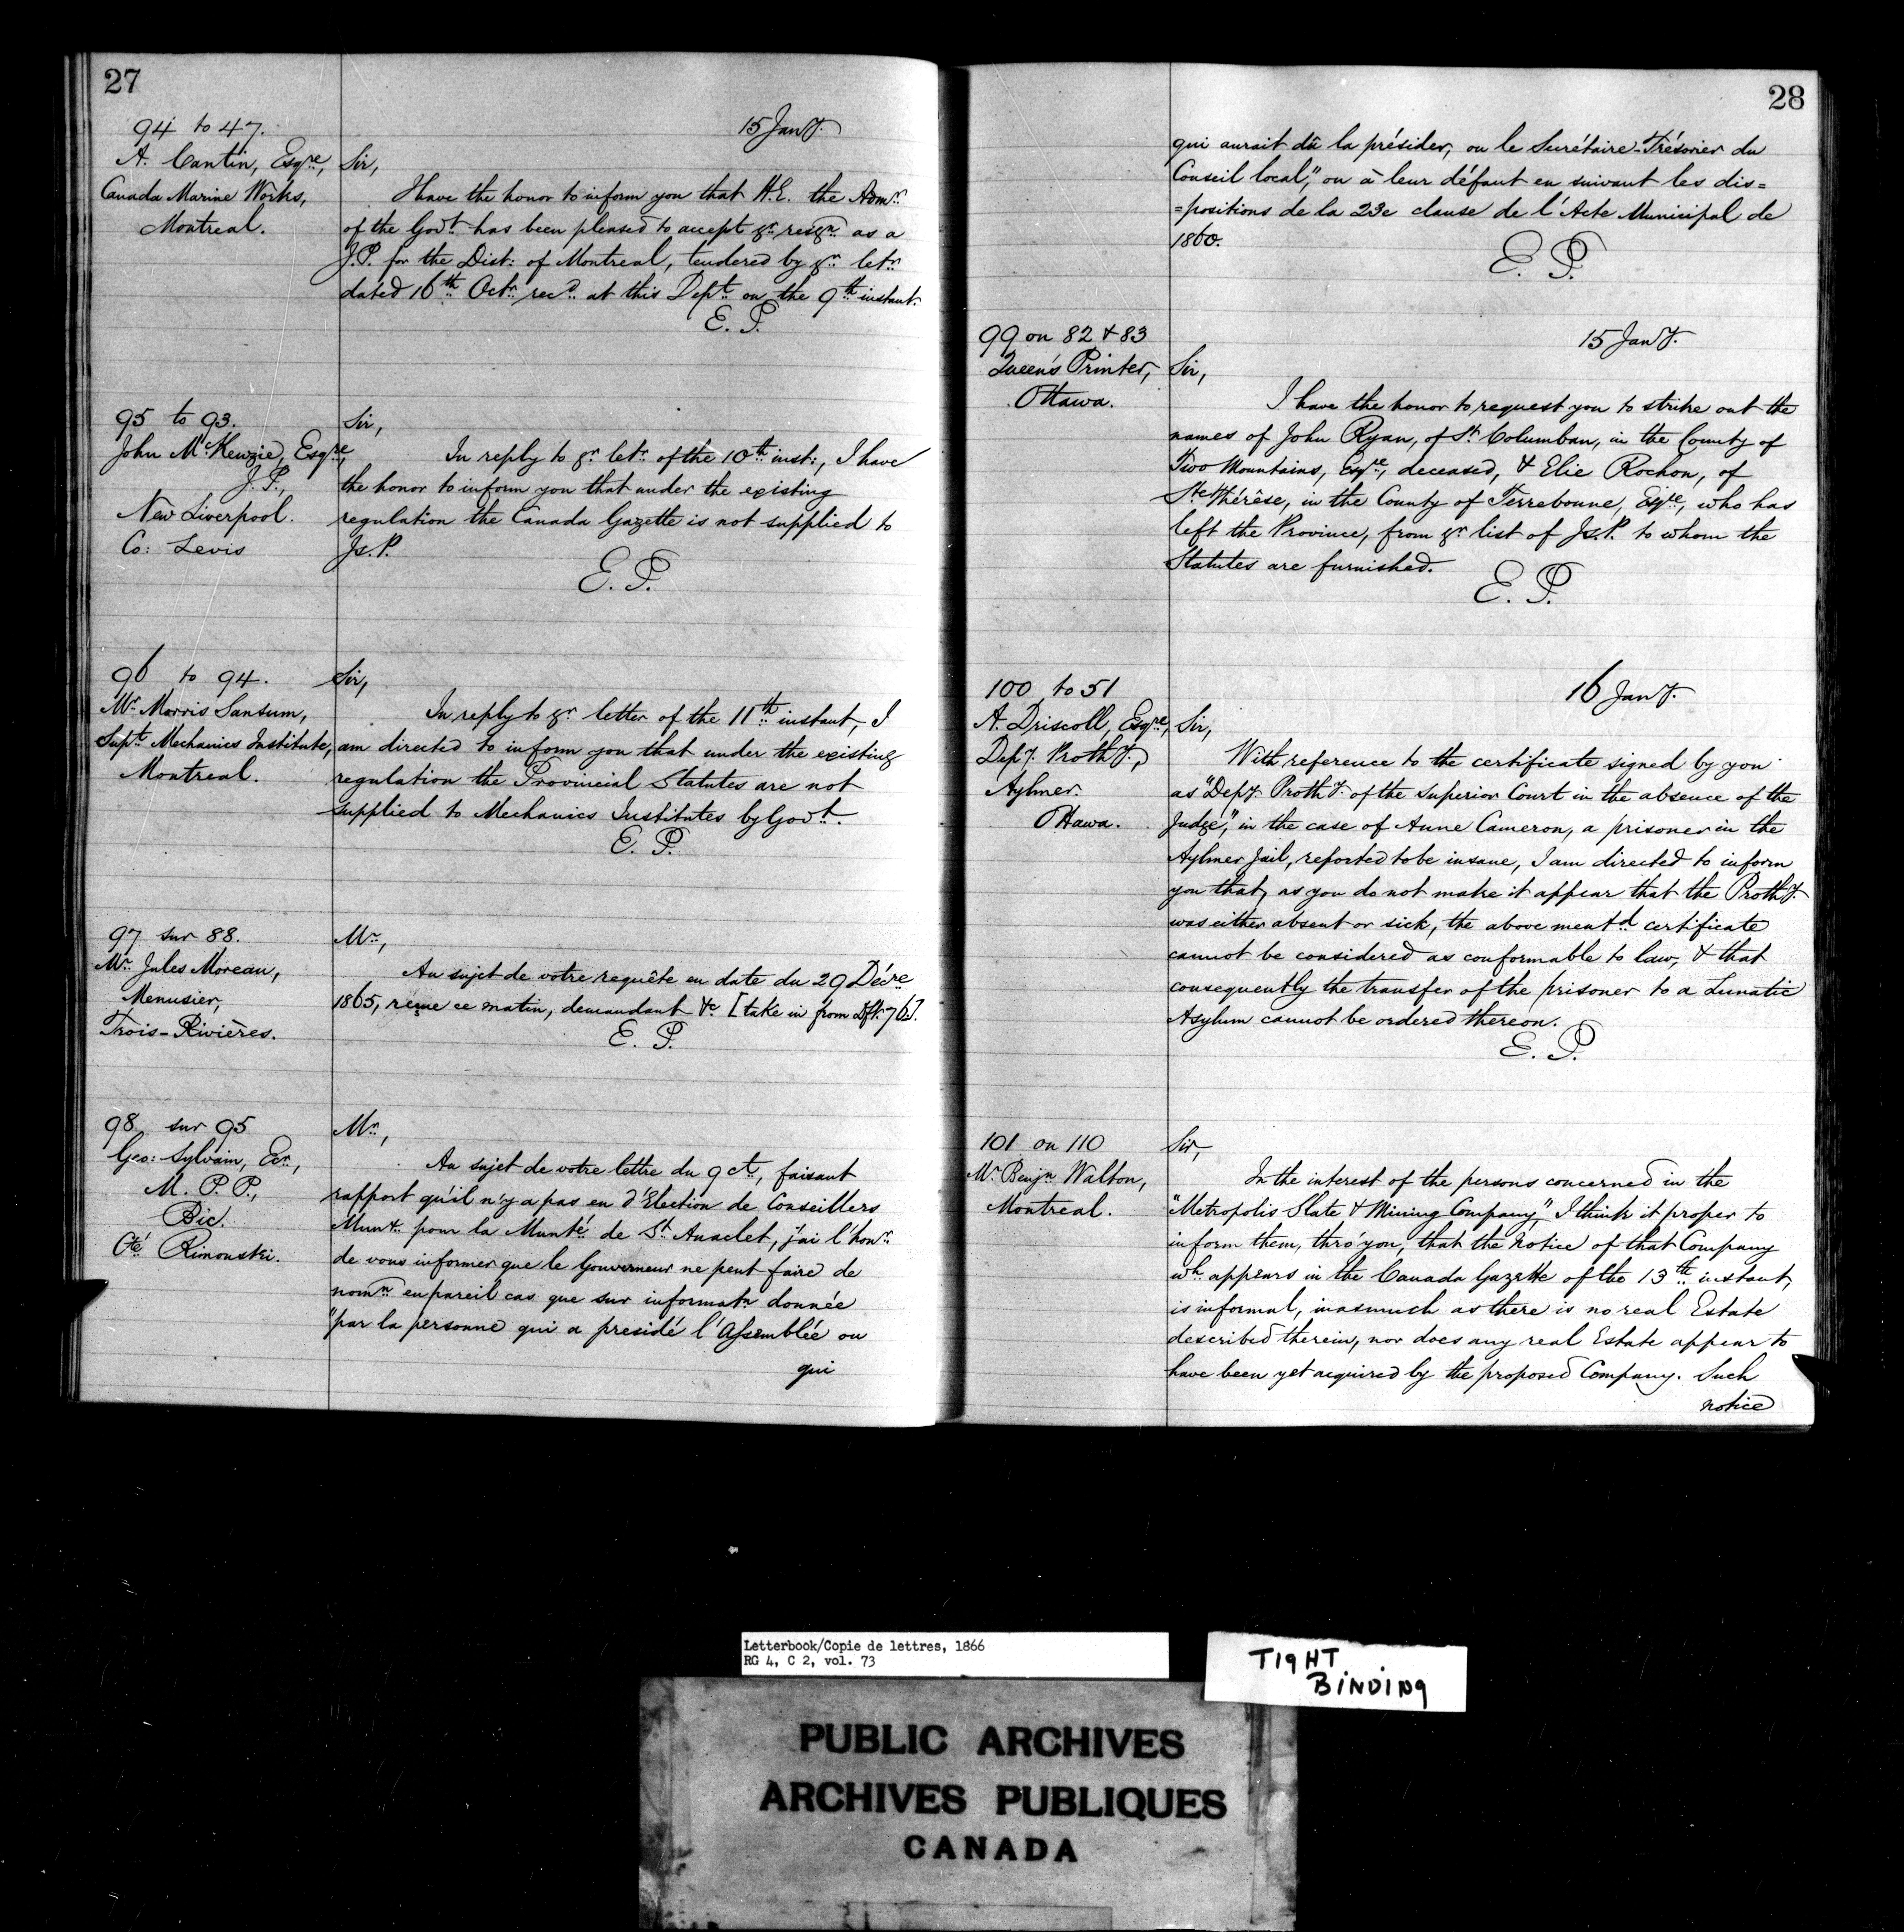 27
94 to 47.
A. Cantin, Esqre,
Canada Marine Works,
Montreal.
15 Jany.
Sir,
I have the honor to inform you that H.E. the Admr.
of the Govt. has been pleased to accept yr. resgn. as a
J.P. for the Dist: of Montreal, tendered by yr. letr.
dated 16th Octr. recd. at this Dept. on the 9th instant.
E. P.
95 to 93.
John McKenzie, Esqre,
J.P.,
New Liverpool.
Co: Levis
Sir,
In reply to yr. letr. of the 10th inst:, I have
the honor to inform you that under the existing
regulation the Canada Gazette is not supplied to
Js.P.
E. P.
96 to 94.
Mr. Morris Sansum,
Supt. Mechanics Institute,
Montreal.
Sir,
In reply to yr. letter of the 11th instant, I
am directed to inform you that under the existing
regulation the Provincial Statutes are not
supplied to Mechanics Institutes by Govt.
E. P.
97 sur 88.
Mr. Jules Moreau,
Menusier,
Trois-Rivières.
Mr.,
Au sujet de votre requête en date du 29 Décre
1865, reçue ce matin, demandant &c [take in from Dft. 76].
E. P.
98 sur 95
Geo: Sylvain, Ecr.,
M. P. P.,
Bic.
Cté Rimouski.
Mr.,
Au sujet de votre lettre du 9 ct., faisant
rapport qu'il n'y a pas eu d'Election de Conseillers
Munx. pour la Munté. de St. Anaclet, j'ai l'honr.
de vous informer que le Gouverneur ne peut faire de
nomn. en pareil cas que sur informatn. donnée
"par la personne qui a presidé l'Assemblée ou
qui
28
qui aurait dû la présider, ou le Secrétaire-Trésorier du
Conseil local," ou à leur défaut en suivant les dis=
=positions de la 23e clause de l'Acte Municipal de
1860.
E. P.
99 on 82 & 83
Queen's Printer,
Ottawa.
15 Jany.
Sir,
I have the honor to request you to strike out the
names of John Ryan, of St. Columban, in the County of
Two Mountains, Esqre, deceased, & Elie Rochon, of
Ste Thérèse, in the County of Terrebonne, Esqre, who has
left the Province, from yr. list of Js.P. to whom the
Statutes are furnished.
E. P.
100 to 51
A. Driscoll, Esqre,
Depy. Prothy.,
Aylmer.
Ottawa.
16 Jany.
Sir,
With reference to the certificate signed by you
as "Depy. Prothy. of the Superior Court in the absence of the
Judge," in the case of Anne Cameron, a prisoner in the
Aylmer Jail, reported to be insane, I am directed to inform
you that, as you do not make it appear that the Prothy.
was either absent or sick, the above mentd. certificate
cannot be considered as conformable to law, & that
consequently the transfer of the prisoner to a Lunatic
Asylum cannot be ordered thereon.
E. P.
101 on 110
Mr. Benjn. Walton,
Montreal.
Sir,
In the interest of the persons concerned in the
"Metropolis Slate & Mining Company," I think it proper to
inform them, thro' you, that the Notice of that Company
wh. appears in the Canada Gazette of the 13th instant,
is informal, inasmuch as there is no real Estate
described therein, nor does any real Estate appear to
have been yet acquired by the proposed Company. Such
notice
Letterbook/Copie de lettres, 1866
RG 4, C 2, vol. 73
TIGHT
BINDING
PUBLIC ARCHIVES
ARCHIVES PUBLIQUES
CANADA